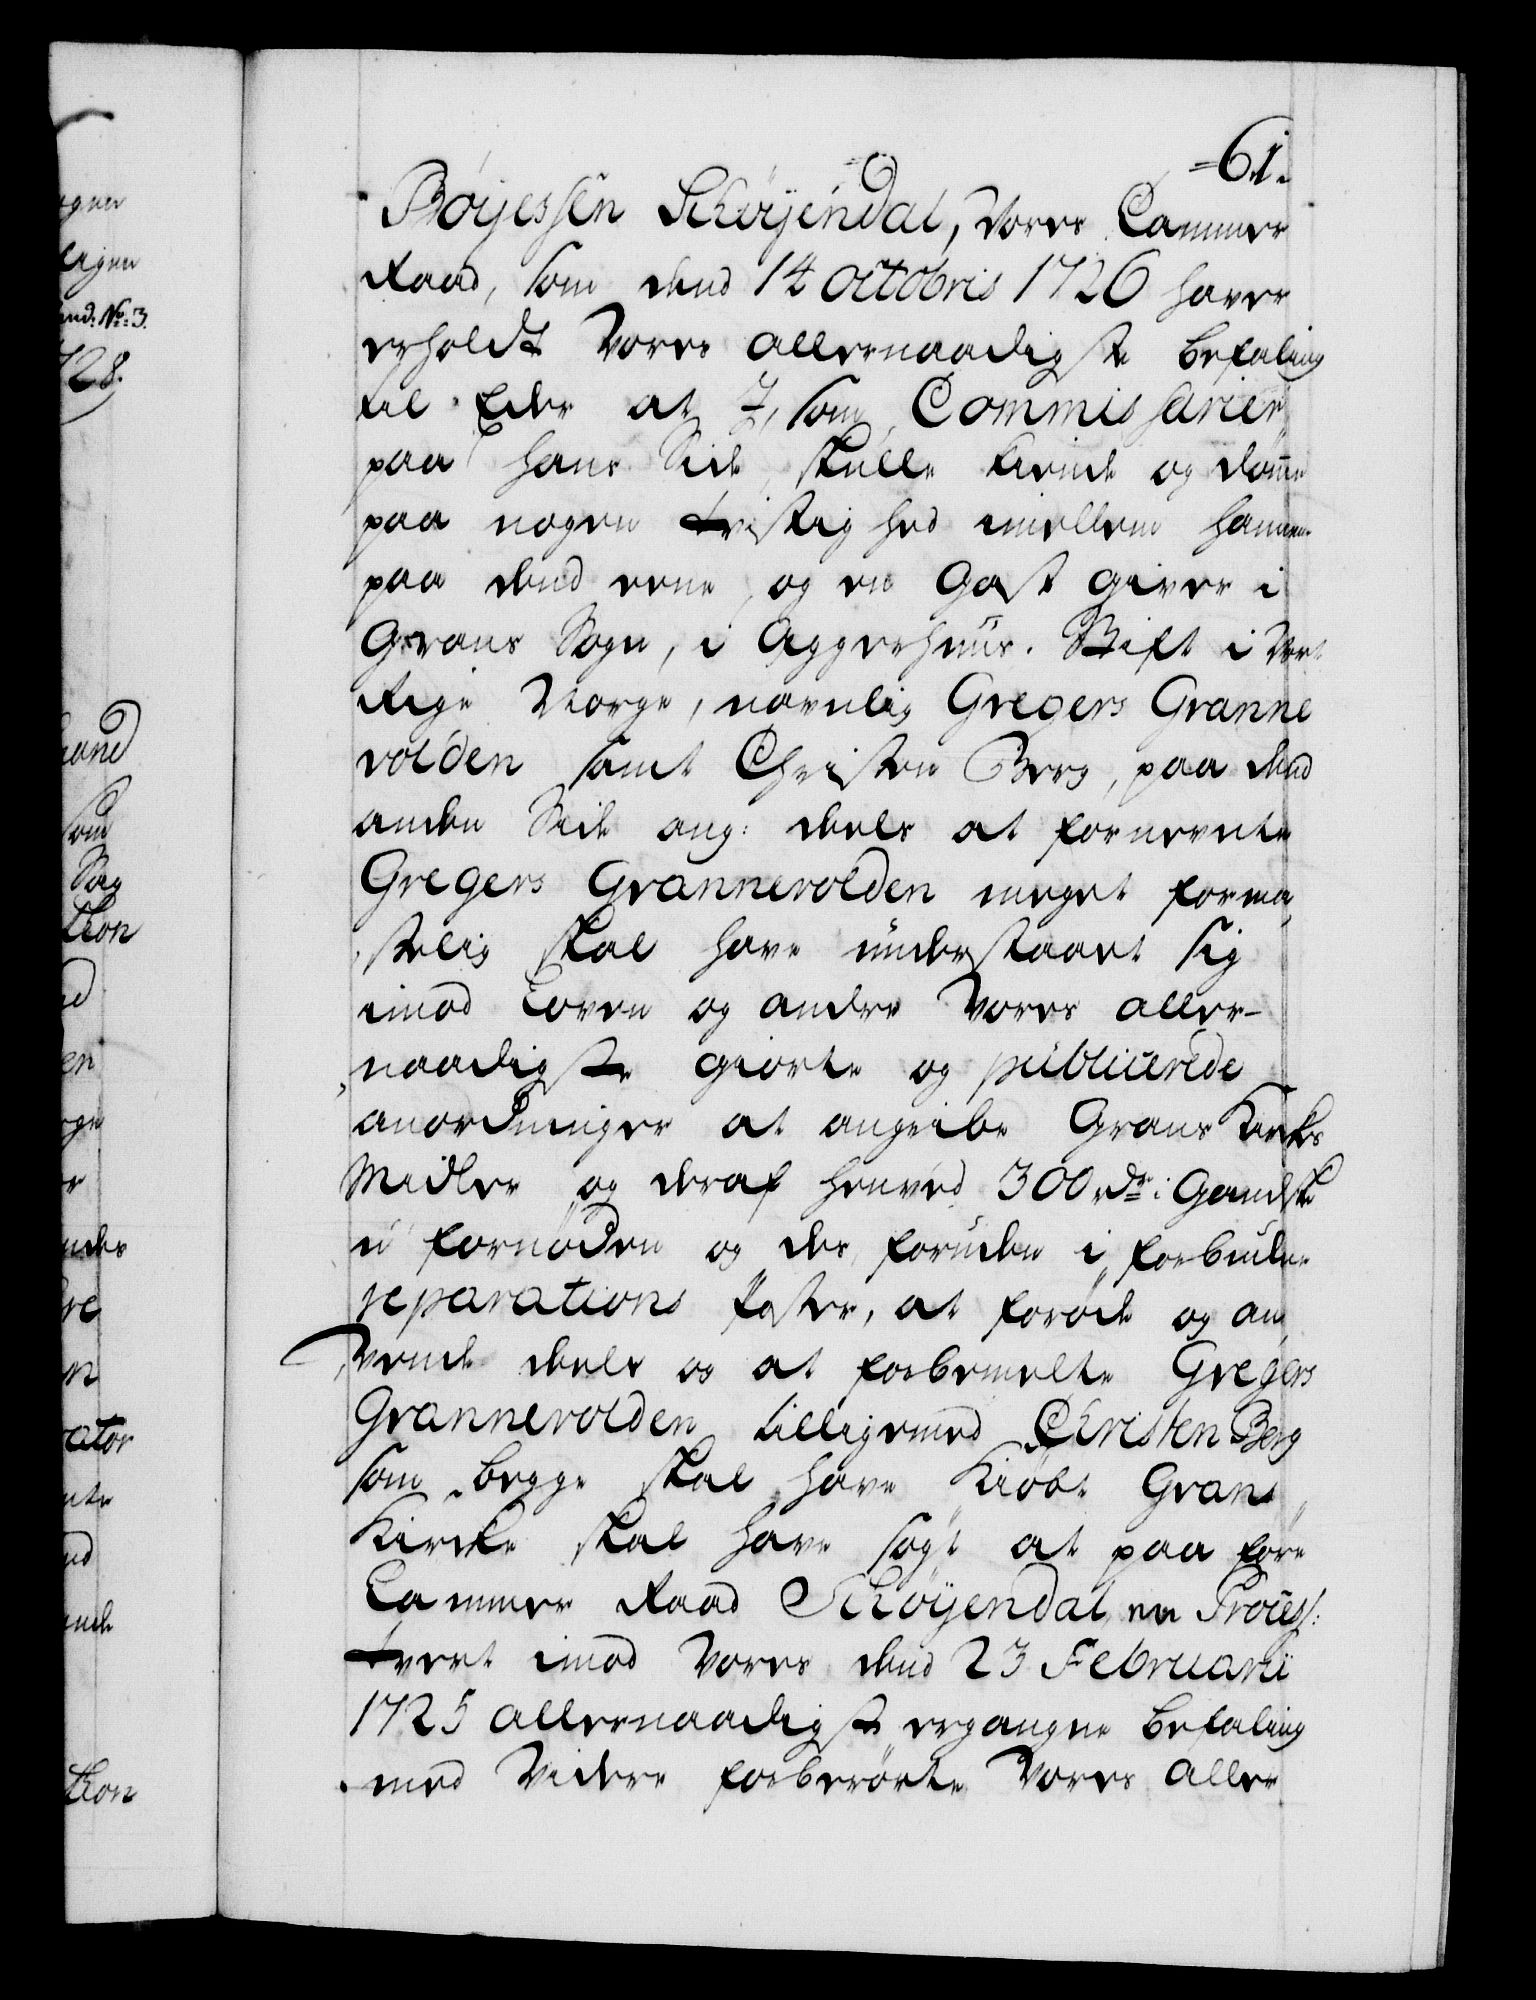 =61.
Böÿessen Schöÿendal, Vores Cammer
Raad, som dend 14 octobris 1726 haver
erholdt Vores allernaadigste befaling
til Eder at I, som Commissarier
paa hans Side, skulle kiende og dømme
paa nogen tvistighed imellem hannem
paa dend eene, og en Gastgiver i
Grans Sogn, i Aggershuus Stift i Vort
Rige Norge, navnlig Gregers Granne
volden samt Christen Berg, paa dend
anden Side ang: deels at fornevnte
Gregers Grannevolden meget forma
stelig skal have understaaet sig
imod Loven og andre Vores aller-
naadigste giorte og publicerede
anordninger at angribe Grans Kirkes
Midler og deraf henved 300 rdr: i Gandske
u fornøden og des foruden i forbuden
reparations poster, at forøde og an
vende deels og at forbemelte Gregers
Grannevolden tilligemed Christen Berg
som begge skal have Kiøbt Grans
Kirke skal have søgt at paa føre
Cammer Raad Schöÿendal en Process:
tvert imod Vores dend 23 Februarii
1725 allernaadigst ergangne befaling
med Videre forberørte Vores aller
ogner
ligen
728.
som
Sag
thon
en
ator
thon